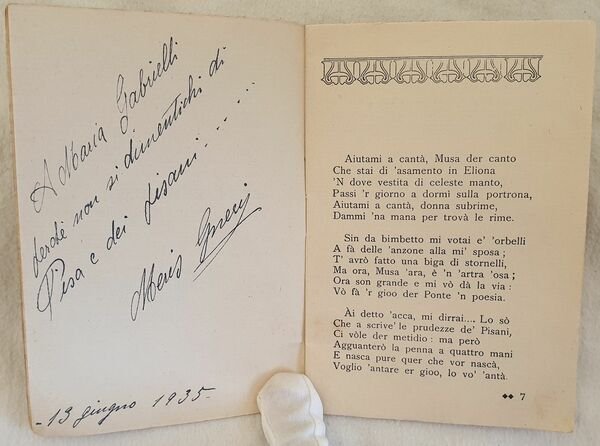 A Maria Gabrielli
perchè non si dimentichi di
Pisa e dei pisani......
- 13 giugno 1935-
Aiutami a cantà, Musa der canto
Che stai di 'asamento in Eliona
'N dove vestita di celeste manto,
Passi 'r giorno a dormì sulla portrona,
Aiutami a cantà, donna subrime,
Dammi 'na mana per trovà le rime.
Sin da bimbetto mi votai e' 'orbelli
A fà delle 'anzone alla mi' sposa;
T' avrò fatto una biga di stornelli,
Ma ora, Musa 'ara, è 'n 'artra 'osa;
Ora son grande e mi vò dà la via:
Vò fà 'r gioo der Ponte 'n poesia.
Ài detto 'acca, mi dirrai.... Lo sò
Che a scrive' le prudezze de' Pisani,
Ci vòle der metidio: ma però
Agguanterò la penna a quattro mani
E nasca pure quer che vor nascà,
Voglio 'antare er gioo, lo vo' 'antà.
7